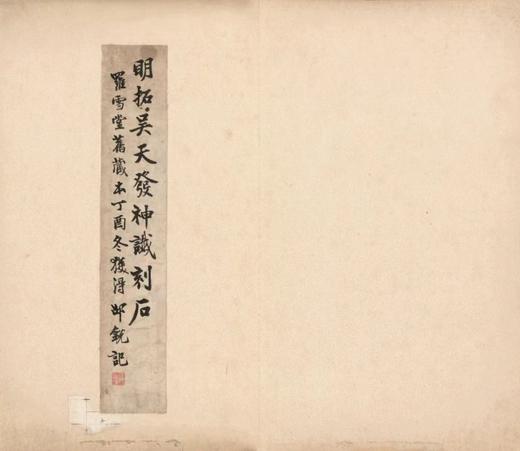 明拓吳天發神讖刻石
羅雪堂舊藏本丁酉冬獲得邨銳記